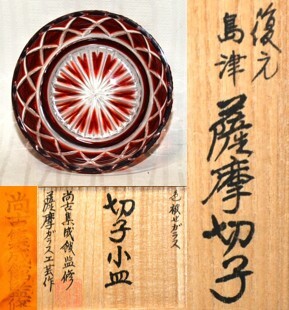 復元
島津
薩摩切子
色被せガラス
切子小皿
尚古集成館監修
薩摩ガラス工芸作